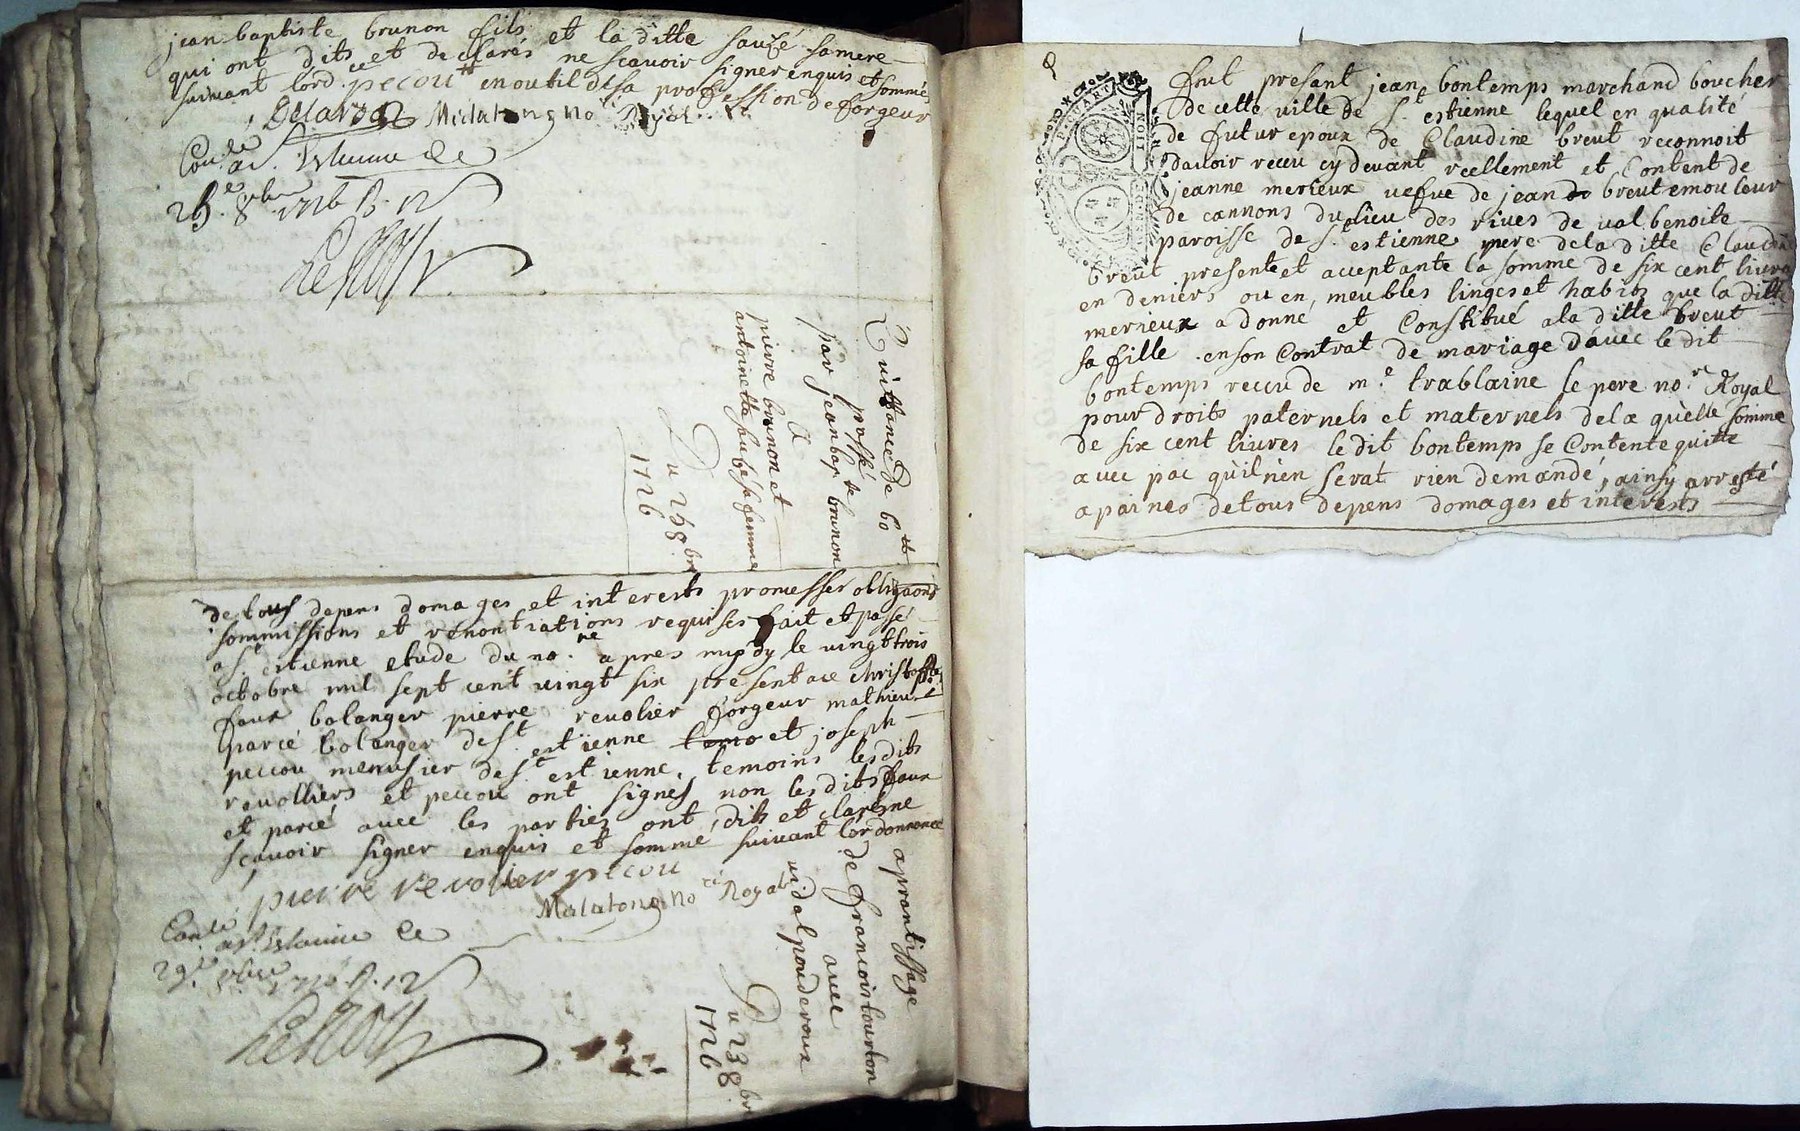 jean baptiste brunon fils et la ditte sauzé samere
qui ont dits et declarés ne scavoir signer enquis et sommés
suivant lord.ce pecou en outil de sa profession de forgeur
Delaroa Malatong no.re Royal
a St Estienne le
25.e 8bre 1726 R. 12
LeRoy
Quittance de 60 tt
passé
par jean bap.te brunon
a
pierre brunon et
antoinette sauzé sa femme
Du 25 8.bre
1726
de tous depens domages et interests promesses obligaons
sommissions et renontiations requises fait et passé
a St estienne etude du no.re apres mydy le vingttrois
octobre mil sept cent vingt six presentace christoffle
faux bolanger pierre reuolier forgeur mathieu
parcé bolanger de St estienne temo et joseph
peccou menusier de St estienne, temoins les dits
reuolliers et peccou ont signes non les dits faux
et parcé avec les parties ont dits et clarés ne
scavoir signer enquis et sommé suivant lordonnance
pierre revolier pecou
Malatong no.re Royal
a St Estienne le
29.e 8bre 1726 R. 12
LeRoy
aprantissage
de francois tourbon
avec
vidal pouderoux
Du 23 8.bre
1726
fut presant jean bontemps marchand boucher
de cette ville de St estienne lequel en qualité
de futur epoux de Claudine breut reconnoit
davoir receu cy devant reellement et Content de
jeanne merieux vefve de jean breut emouleur
de cannons du lieu des rives de val benoite
paroisse de St estienne mere de la ditte Claudine
breut presente et acceptante la somme de six cent livres
en deniers ou en meubles linges et habits que la ditte
merieux a donné et Constitué ala ditte breut
sa fille en son Contrat de mariage davec le dit
bontemps receu de m.e trablaine le pere no.re Royal
pour droits paternels et maternels de la quelle somme
de six cent livres le dit bontemps se Contente quitte
avec pac quil nen serat rien demandé, ainsy arresté
a paines de tous depens domages et interests